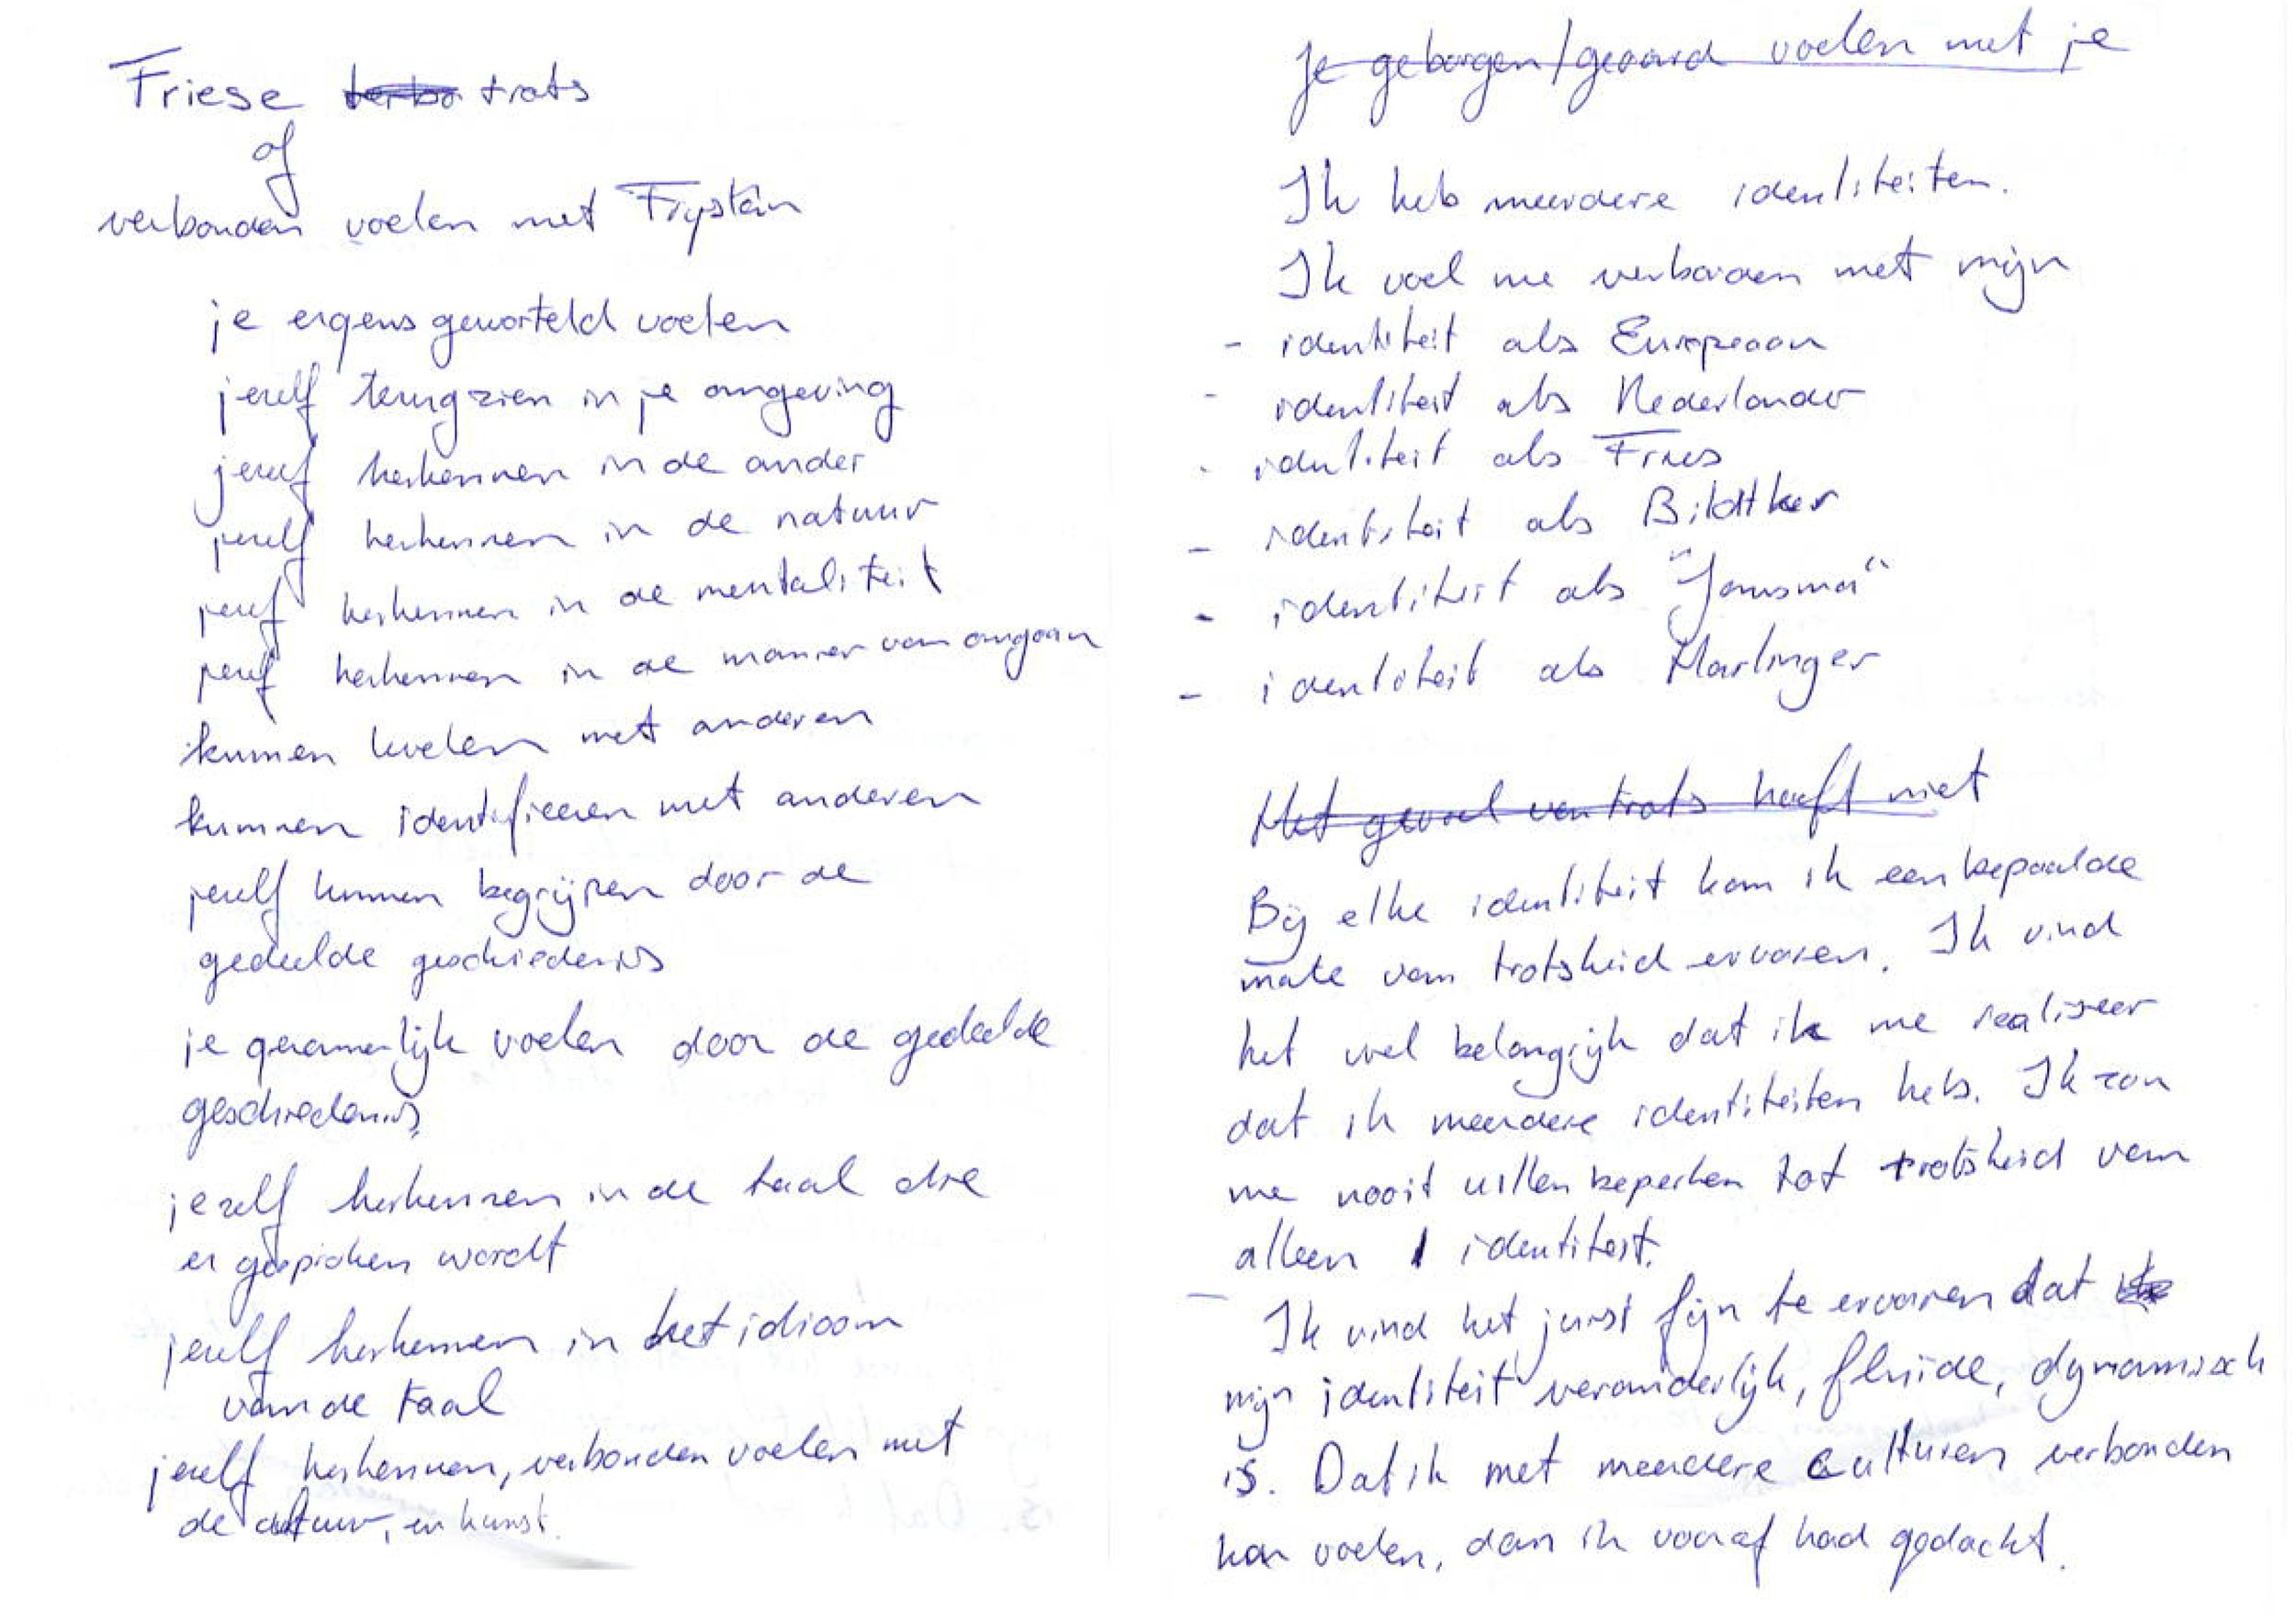 Friese trots
of
verbonden voelen met Fryslân
je ergens geworteld voelen
jezelf terugzien in je omgeving
jezelf herkennen in de ander
jezelf herkennen in de natuur
jezelf herkennen in de mentaliteit
jezelf herkennen in de manier van omgaan
kunnen levelen met anderen
kunnen identificeren met anderen
jezelf kunnen begrijpen door de
gedeelde geschiedenis
je gezamenlijk voelen door de gedeelde
geschiedenis
jezelf herkennen in de taal die
er gesproken wordt
jezelf herkennen in het idioom
van de taal
jezelf herkennen, verbonden voelen met
de cultuur, en kunst.
Je geborgen/geaard voelen met je
Ik heb meerdere identiteiten.
Ik voel me verbonden met mijn
- identiteit als Europeaan
- identiteit als Nederlander
- identiteit als Fries
- identiteit als Bildtker
- identiteit als "Jousma"
- identiteit als Harlinger
Het gevoel van trots hoeft niet
Bij elke identiteit kan ik een bepaalde
mate van trotsheid ervaren. Ik vind
het wel belangrijk dat ik me realiseer
dat ik meerdere identiteiten heb. Ik zou
me nooit willen beperken tot trotsheid van
alleen 1 identiteit.
- Ik vind het juist fijn te ervaren dat
mijn identiteit veranderlijk, fluïde, dynamisch
is. Dat ik met meerdere culturen verbonden
kan voelen, dan ik vooraf had gedacht.